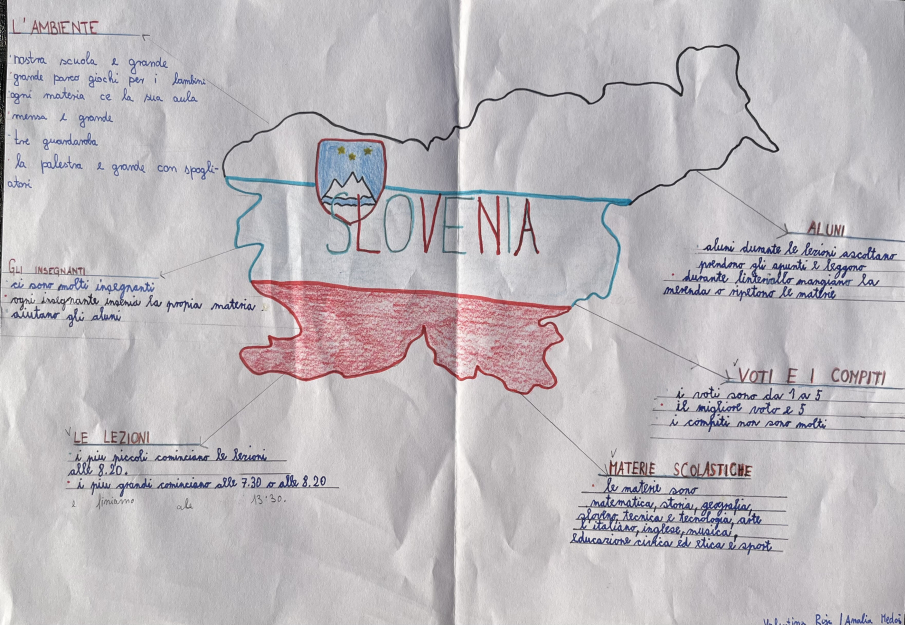 L'AMBIENTE
· nostra scuola e grande
· grande parco giochi per i bambini
ogni materia ce la sua aula
mensa e grande
· tre guardaroba
· la palestra e grande con spogli-
atori
SLOVENIA
GLI INSEGNANTI
· ci sono molti insegnanti
· ogni insignante insenia la propia materia
· aiutano gli aluni
ALUNI
· aluni durante le lezioni ascoltano
prendono gli apunti e leggono
· durante l'interiallo mangiano la
merenda o ripetono le materie
VOTI E I COMPITI
· i voti sono da 1 a 5
· il migliore voto e 5
i compiti non sono molti
LE LEZIONI
· i piu piccoli cominciano le lezioni
alle 8.20.
· i piu grandi cominciano alle 7.30 o alle 8.20
e finiamo ale 13.30.
MATERIE SCOLASTICHE
· le materie sono
matematica, storia, geografia,
sloveno, tecnica e tecnologia, arte
l'italiano, inglese, musica,
educazione civica ed etica e sport
Valentina / Analia